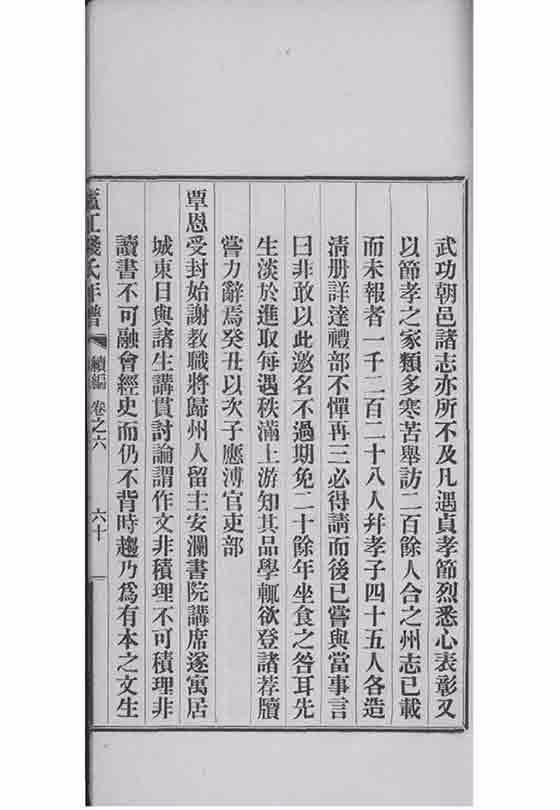 武功朝邑諸志亦所不及凡遇貞孝節烈悉心表彰又
以節孝之家類多寒苦舉訪二百餘人合之州志已載
而未報者一千二百二十八人幷孝子四十五人各造
淸册詳達禮部不憚再三必得請而後已嘗與當事言
曰非敢以此邀名不過期免二十餘年坐食之咎耳先
生淡於進取每遇秩滿上游知其品學輒欲登諸荐牘
嘗力辭焉癸丑以次子應溥官吏部
覃恩受封始謝教職將歸州人留主安瀾書院講席遂寓居
城東日與諸生講貫討論謂作文非積理不可積理非
讀書不可融會經史而仍不背時趨乃爲有本之文生
廬江錢氏年譜 續編 卷之六 六十